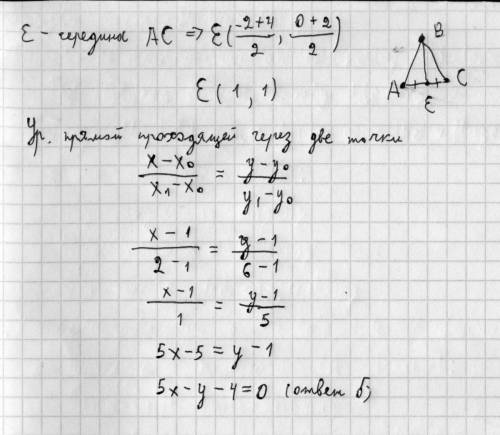 E - середина AC => E(-2+4/2, 0+2/2)
E(1, 1)
B
A
E
C
Ур. прямой проходящей через две точки
x-x₀/x₁-x₀ = y-y₀/y₁-y₀
x-1/2-1 = y-1/6-1
x-1/1 = y-1/5
5x-5=y-1
5x-y-4=0 (ответ б)